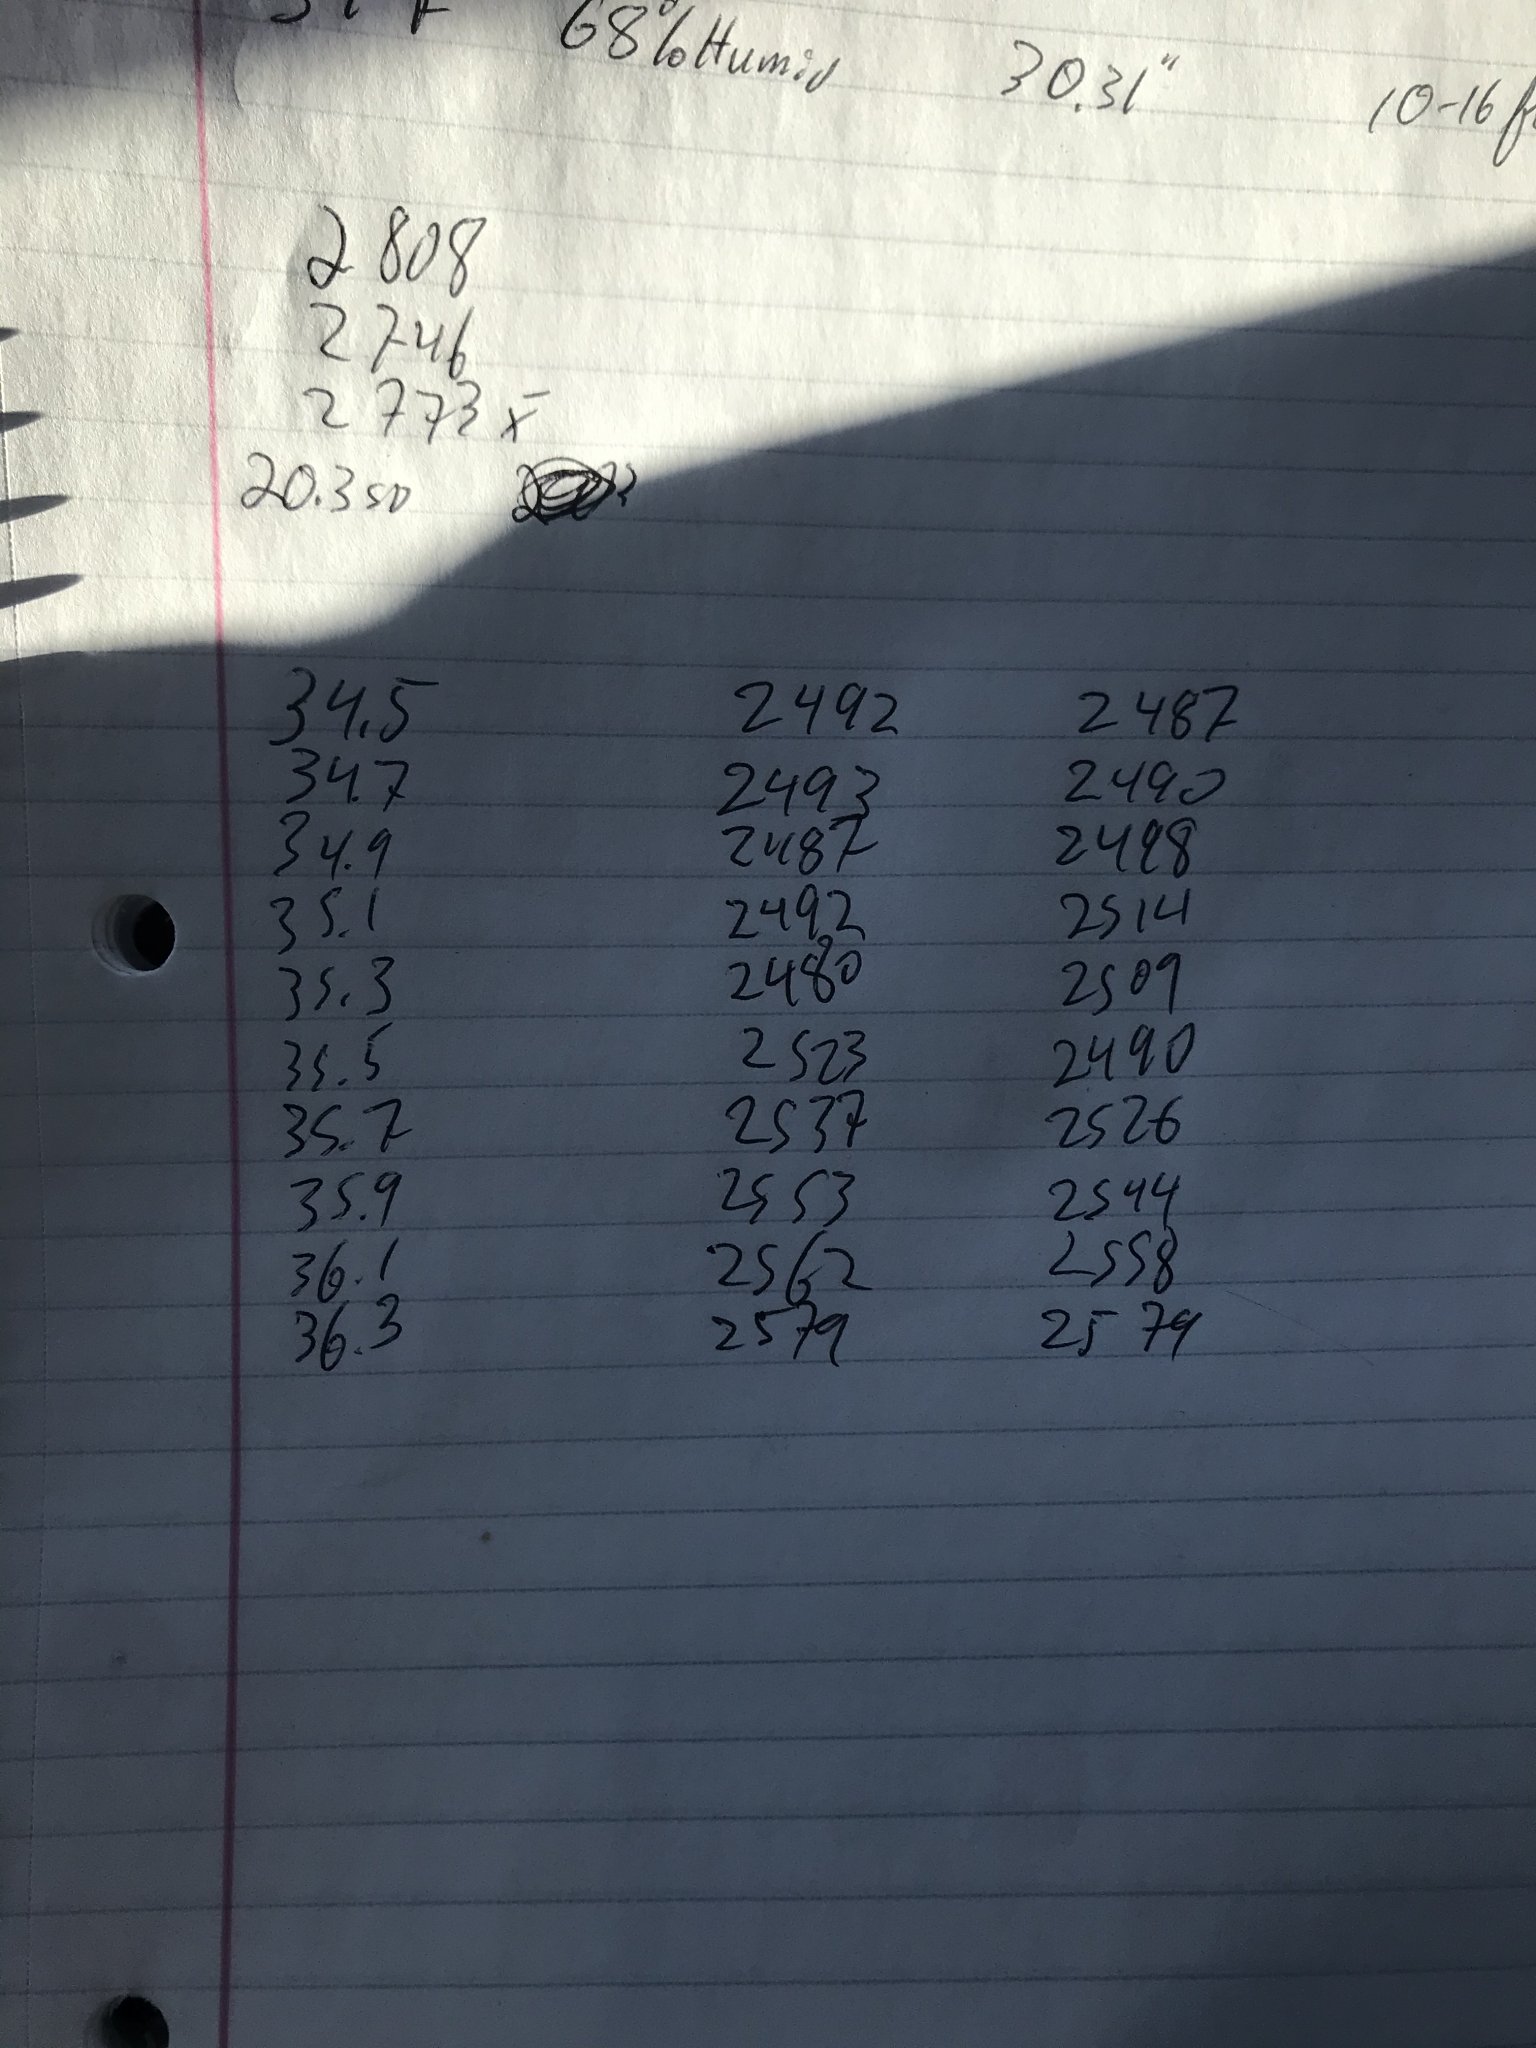 68% Humid 30.31" 10-16
2808
2746
2773 x̄
20.3 SD
34.5 2492 2487
34.7 2493 2490
34.9 2487 2498
35.1 2492 2514
35.3 2480 2509
35.5 2523 2490
35.7 2537 2526
35.9 2553 2544
36.1 2562 2558
36.3 2579 2579